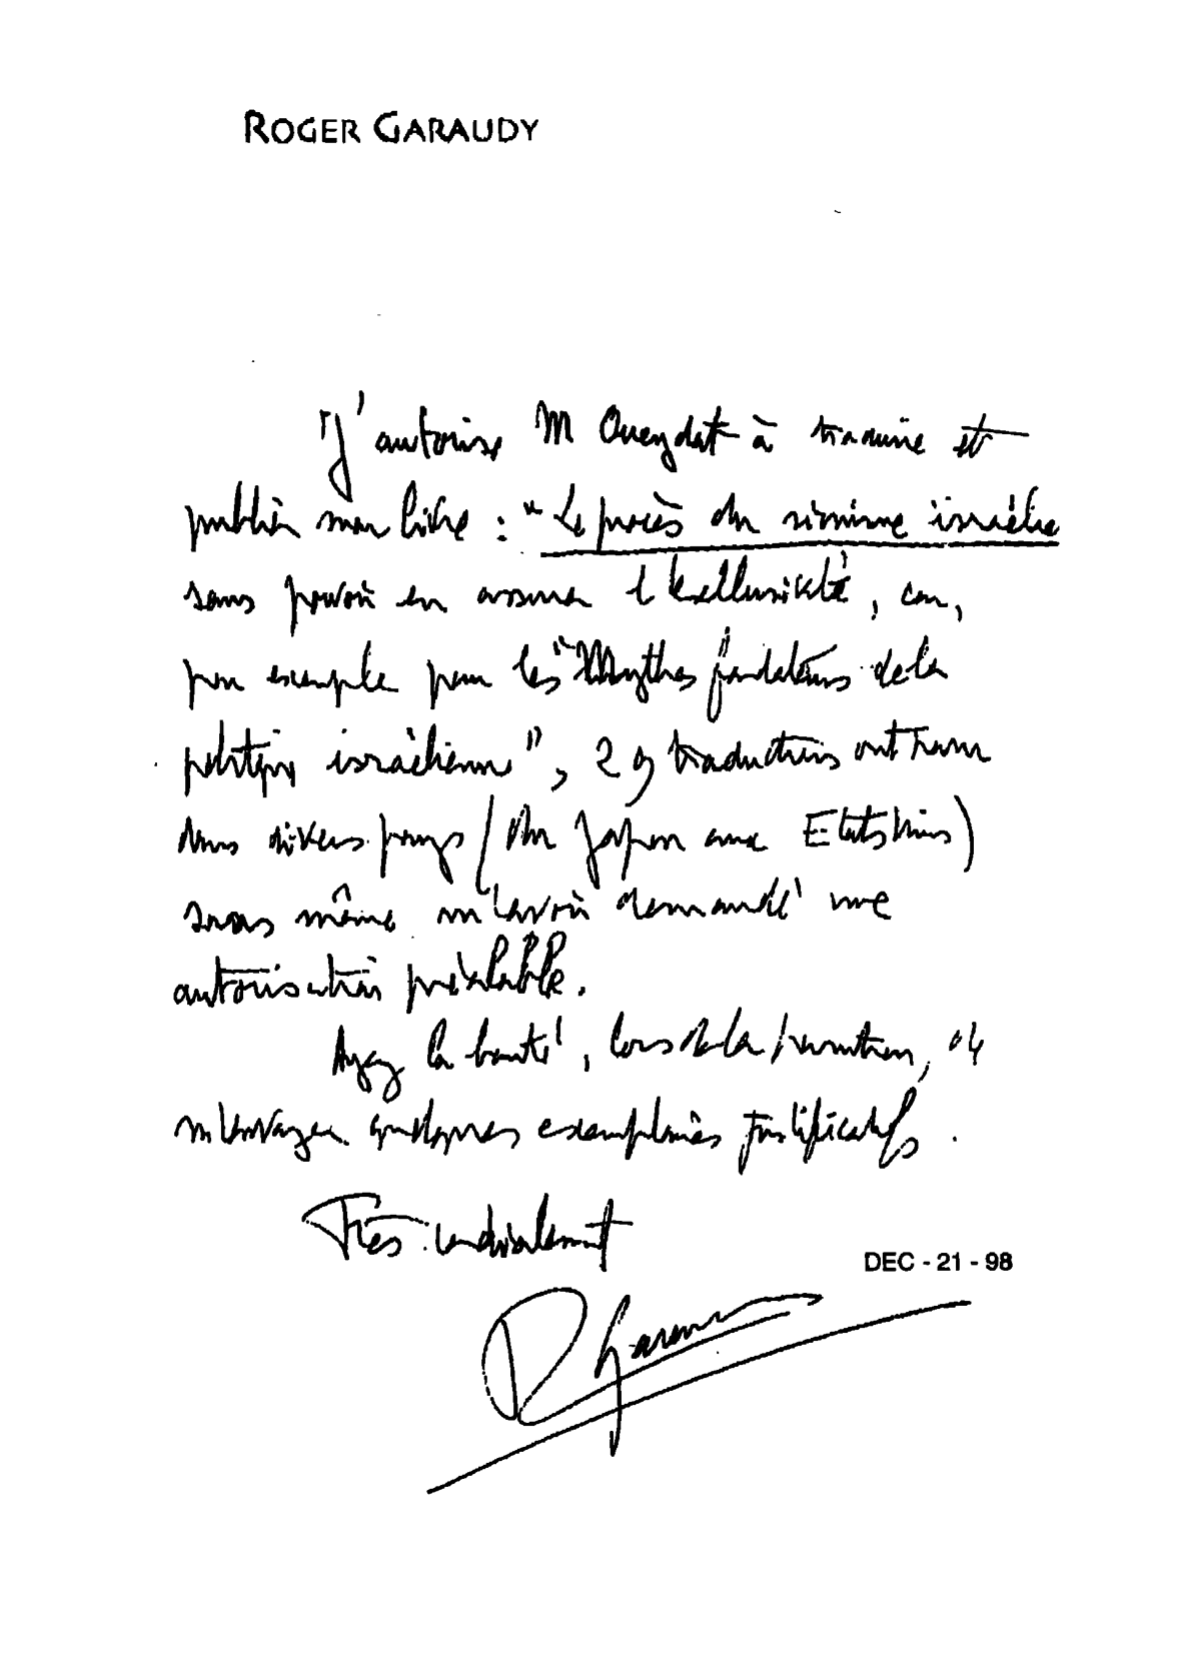 ROGER GARAUDY
J'autorise M Oueydat à traduire et
publier mon livre : "Le procès du sionisme israélie
sans pouvoir en assurer l'exclusivité, car,
par exemple pour les "Mythes fondateurs de la
politique israélienne", 29 traductions ont
dans divers pays (du Japon aux Etats Unis)
sans même m'avoir demandé une
autorisation préalable.
Ayez la bonté, lors de la parution, de
m'envoyer quelques exemplaires justificatifs.
Très cordialement
DEC - 21 - 98
R Garaudy